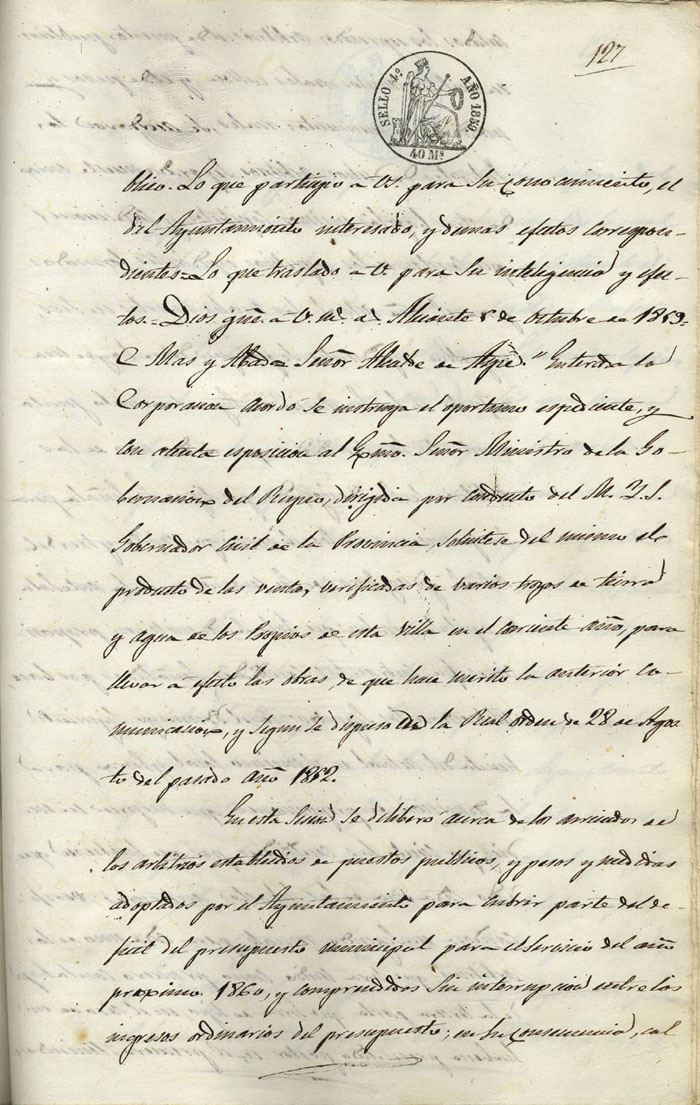 127
SELLO 4º AÑO 1859.
40 Ms
blico. Lo que participo a V. para su conocimiento, el
del Ayuntamiento interesado, y demas efectos correspon-
dientes = Lo que traslado a V. para su inteligencia y efec-
tos = Dios gue. a V. ms. as. Alicante 8 de Octubre de 1859 =
C Mas y Abad = Señor Alcalde de Aspe." Enterada la
Corporacion acordó se instruya el oportuno espediente, y
con atenta esposicion al Exmo. Señor Ministro de la Go-
bernacion del Reyno, dirigida por conducto del M. Y. S.
Gobernador Civil de la Provincia, solicitese del mismo el
producto de las ventas, verificadas de varios trozos de tierra
y agua de los Propios de esta villa en el corriente año, para
llevar a efecto las obras, de que hace merito la anterior co-
municacion, y segun se dispuso en la Real orden de 28 de Agos-
to del pasado año 1852.
En esta Sesion se deliberó acerca de los arriendos de
los arbitrios establecidos de puestos publicos, y pesos y medidas
adoptados por el Ayuntamiento para cubrir parte del de-
ficit del presupuesto municipal para el servicio del año
proximo 1860, y comprendidos sin interrupcion entre los
ingresos ordinarios del presupuesto; en su consecuencia, cal